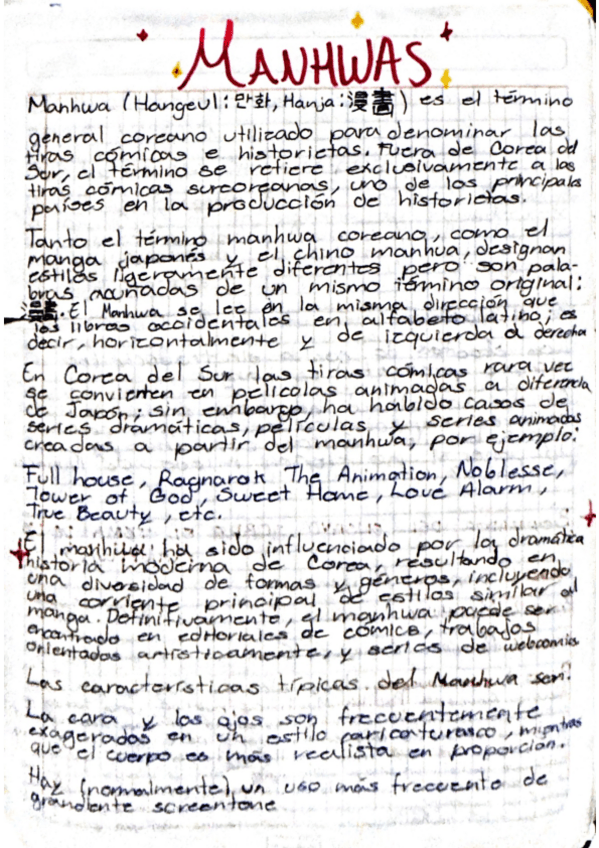 MANHWAS
Manhwa (Hangeul: 만화, Hanja: 漫畵) es el término
general coreano utilizado para denominar las
tiras cómicas e historietas. Fuera de Corea del
Sur, el término se refiere exclusivamente a las
tiras cómicas surcoreanas, uno de los principales
países en la producción de historietas.
Tanto el término manhwa coreano, como el
manga japonés y el chino manhua, designan
estilos ligeramente diferentes pero son pala-
bras acuñadas de un mismo término original:
漫畵. El Manhwa se lee en la misma dirección que
los libros occidentales en alfabeto latino; es
decir, horizontalmente y de izquierda a derecha
En Corea del Sur las tiras cómicas rara vez
se convierten en películas animadas a diferencia
de Japón; sin embargo, ha habido casos de
series dramáticas, películas y series animadas
creadas a partir del manhwa, por ejemplo:
Full house, Ragnarok The Animation, Noblesse,
Tower of God, Sweet Home, Love Alarm,
True Beauty, etc.
El manhwa ha sido influenciado por la dramática
historia moderna de Corea, resultando en
una diversidad de formas y géneros, incluyendo
una corriente principal de estilos similar al
manga. Definitivamente, el manhwa puede ser
encontrado en editoriales de cómics, trabajos
orientados artísticamente, y series de webcomics
Las características típicas del Manhwa son:
La cara y los ojos son frecuentemente
exagerados en un estilo caricaturesco, mientras
que el cuerpo es más realista en proporción.
Hay (normalmente) un uso más frecuente de
grandiente screentone